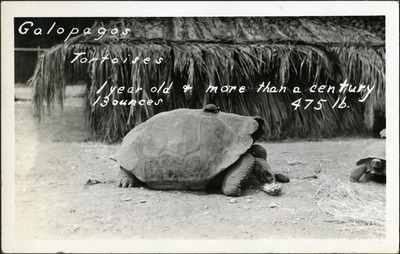 Galopagos
Tortoises
1 year old & more than a century
13 ounces 475 lb.